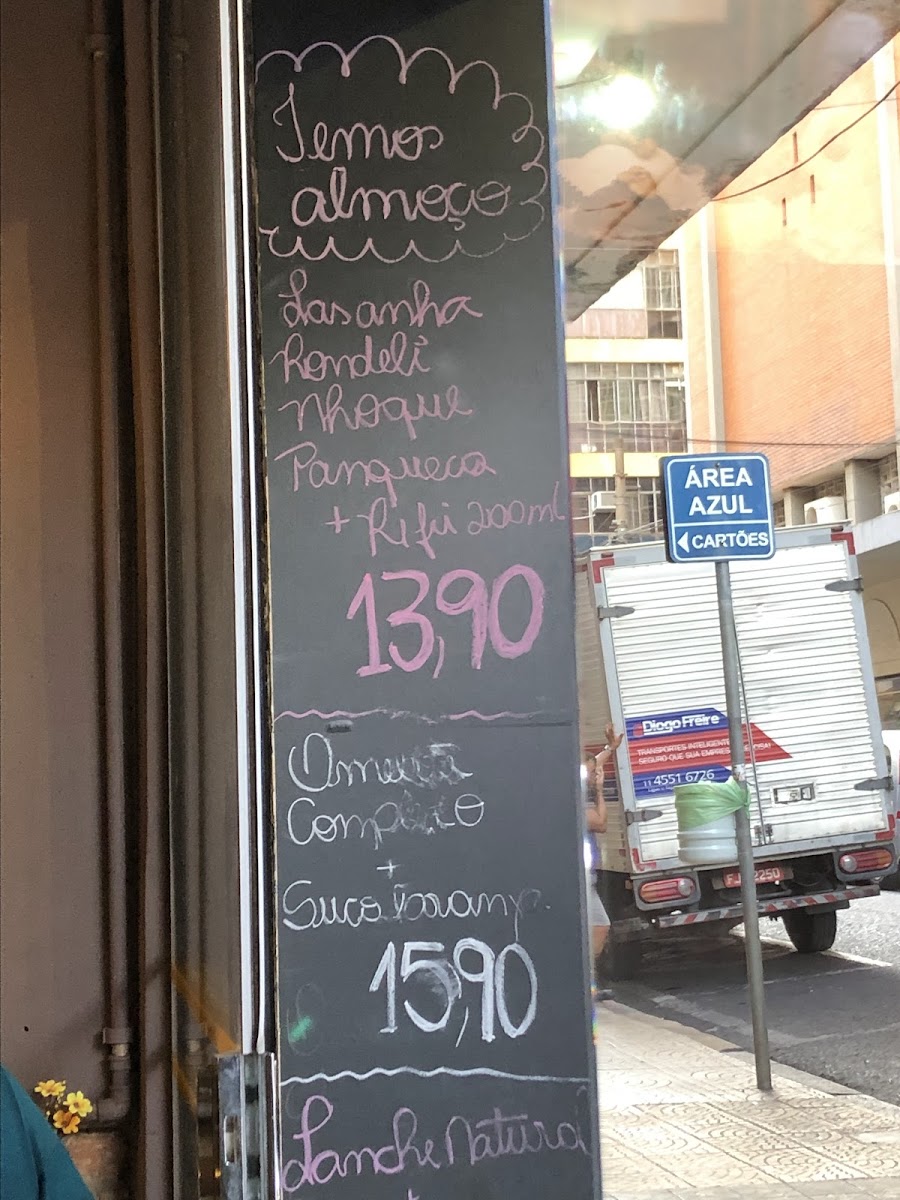 Temos
almoço
Lasanha
Rondeli
Nhoque
Panqueca
+ Refri 200ml
13,90
Omelete
Completo
+
Suco Laranja
15,90
Lanche Natural
+
ÁREA
AZUL
CARTÕES
Diogo Freire
TRANSPORTES INTELIGENTE
SEGURO QUE SUA EMPRES
11 4551 6726
2250